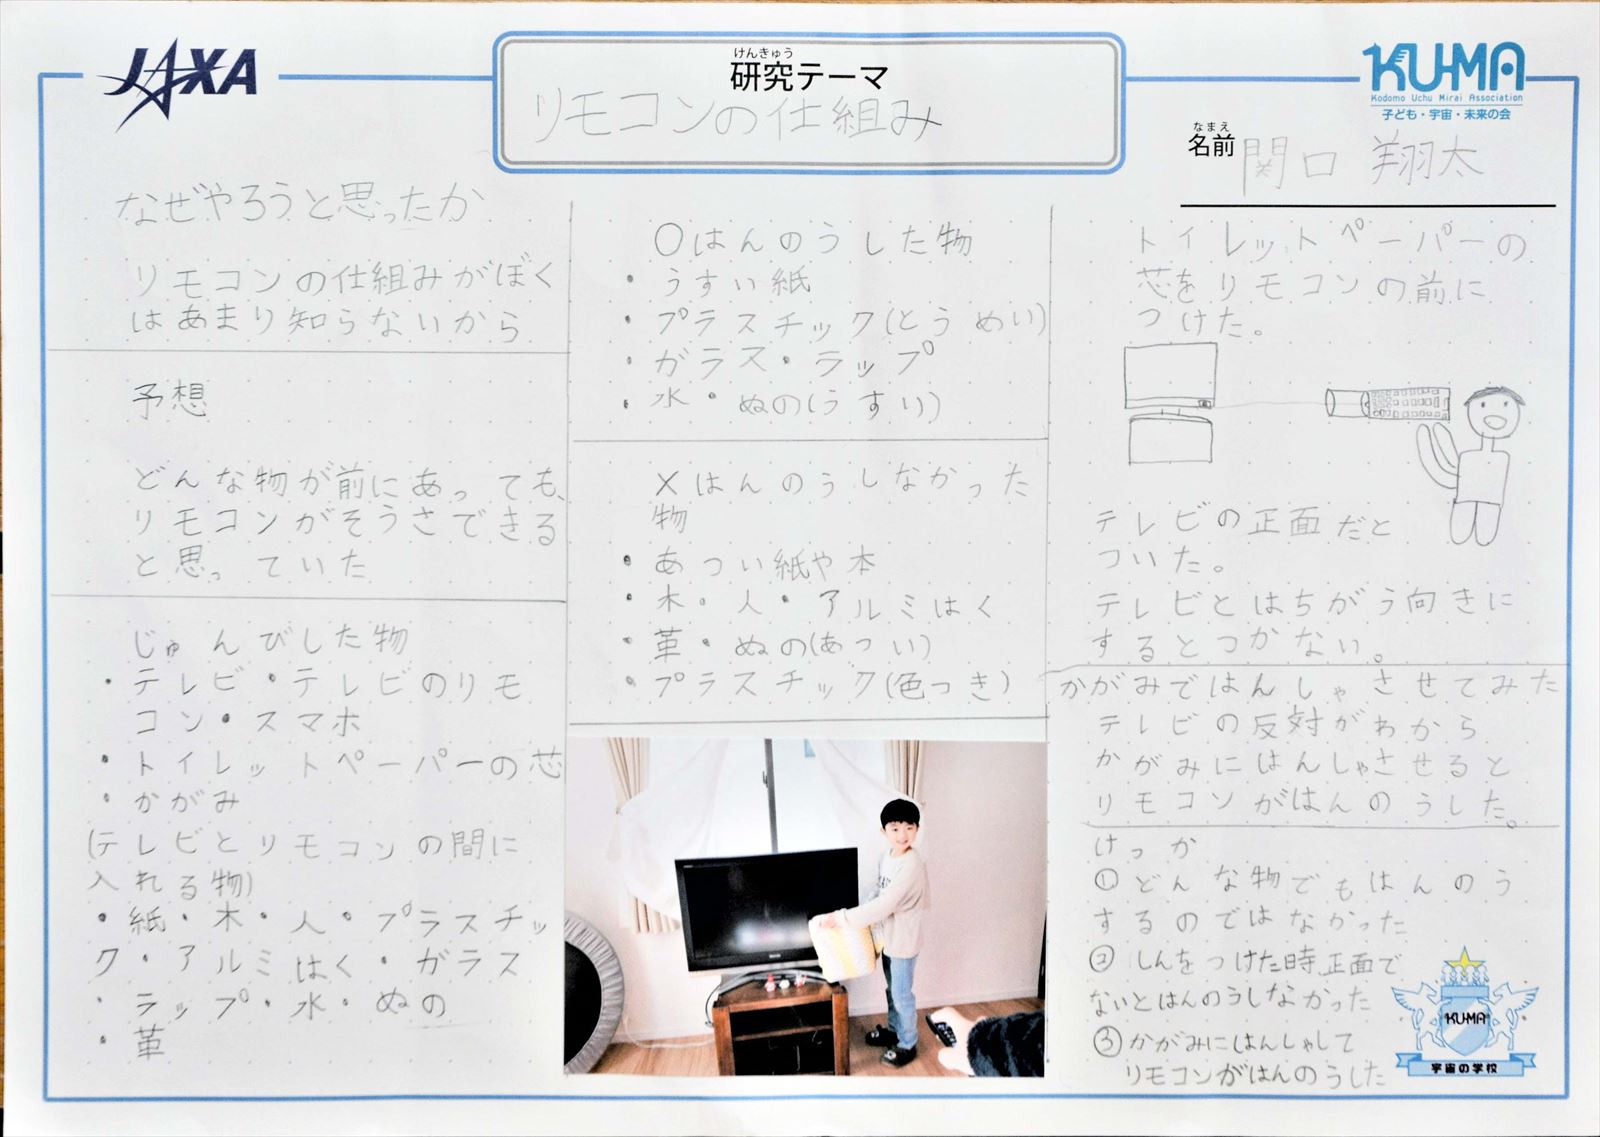 JAXA
けんきゅう
研究テーマ
リモコンの仕組み
KU-MA
Kodomo Uchu Mirai Association
子ども・宇宙・未来の会
なまえ
名前 関口 翔太
なぜやろうと思ったか
リモコンの仕組みがぼく
はあまり知らないから
予想
どんな物が前にあっても、
リモコンがそうさできる
と思っていた
じゅんびした物
・テレビ・テレビのリモ
コン・スマホ
・トイレットペーパーの芯
・かがみ
(テレビとリモコンの間に
入れる物)
・紙・木・人・プラスチッ
ク・アルミはく・ガラス
・ラップ・水・ぬの
・革
○はんのうした物
・うすい紙
・プラスチック(とうめい)
・ガラス・ラップ
・水・ぬの(うすい)
×はんのうしなかった
物
・あつい紙や本
・木・人・アルミはく
・革・ぬの(あつい)
・プラスチック(色つき)
トイレットペーパーの
芯をリモコンの前に
つけた。
テレビの正面だと
ついた。
テレビとはちがう向きに
するとつかない。
かがみではんしゃさせてみた
テレビの反対がわから
かがみにはんしゃさせると
リモコンがはんのうした。
けっか
①どんな物でもはんのう
するのではなかった
②しんをつけた時、正面で
ないとはんのうしなかった
③かがみにはんしゃして
リモコンがはんのうした
KU-MA
宇宙の学校